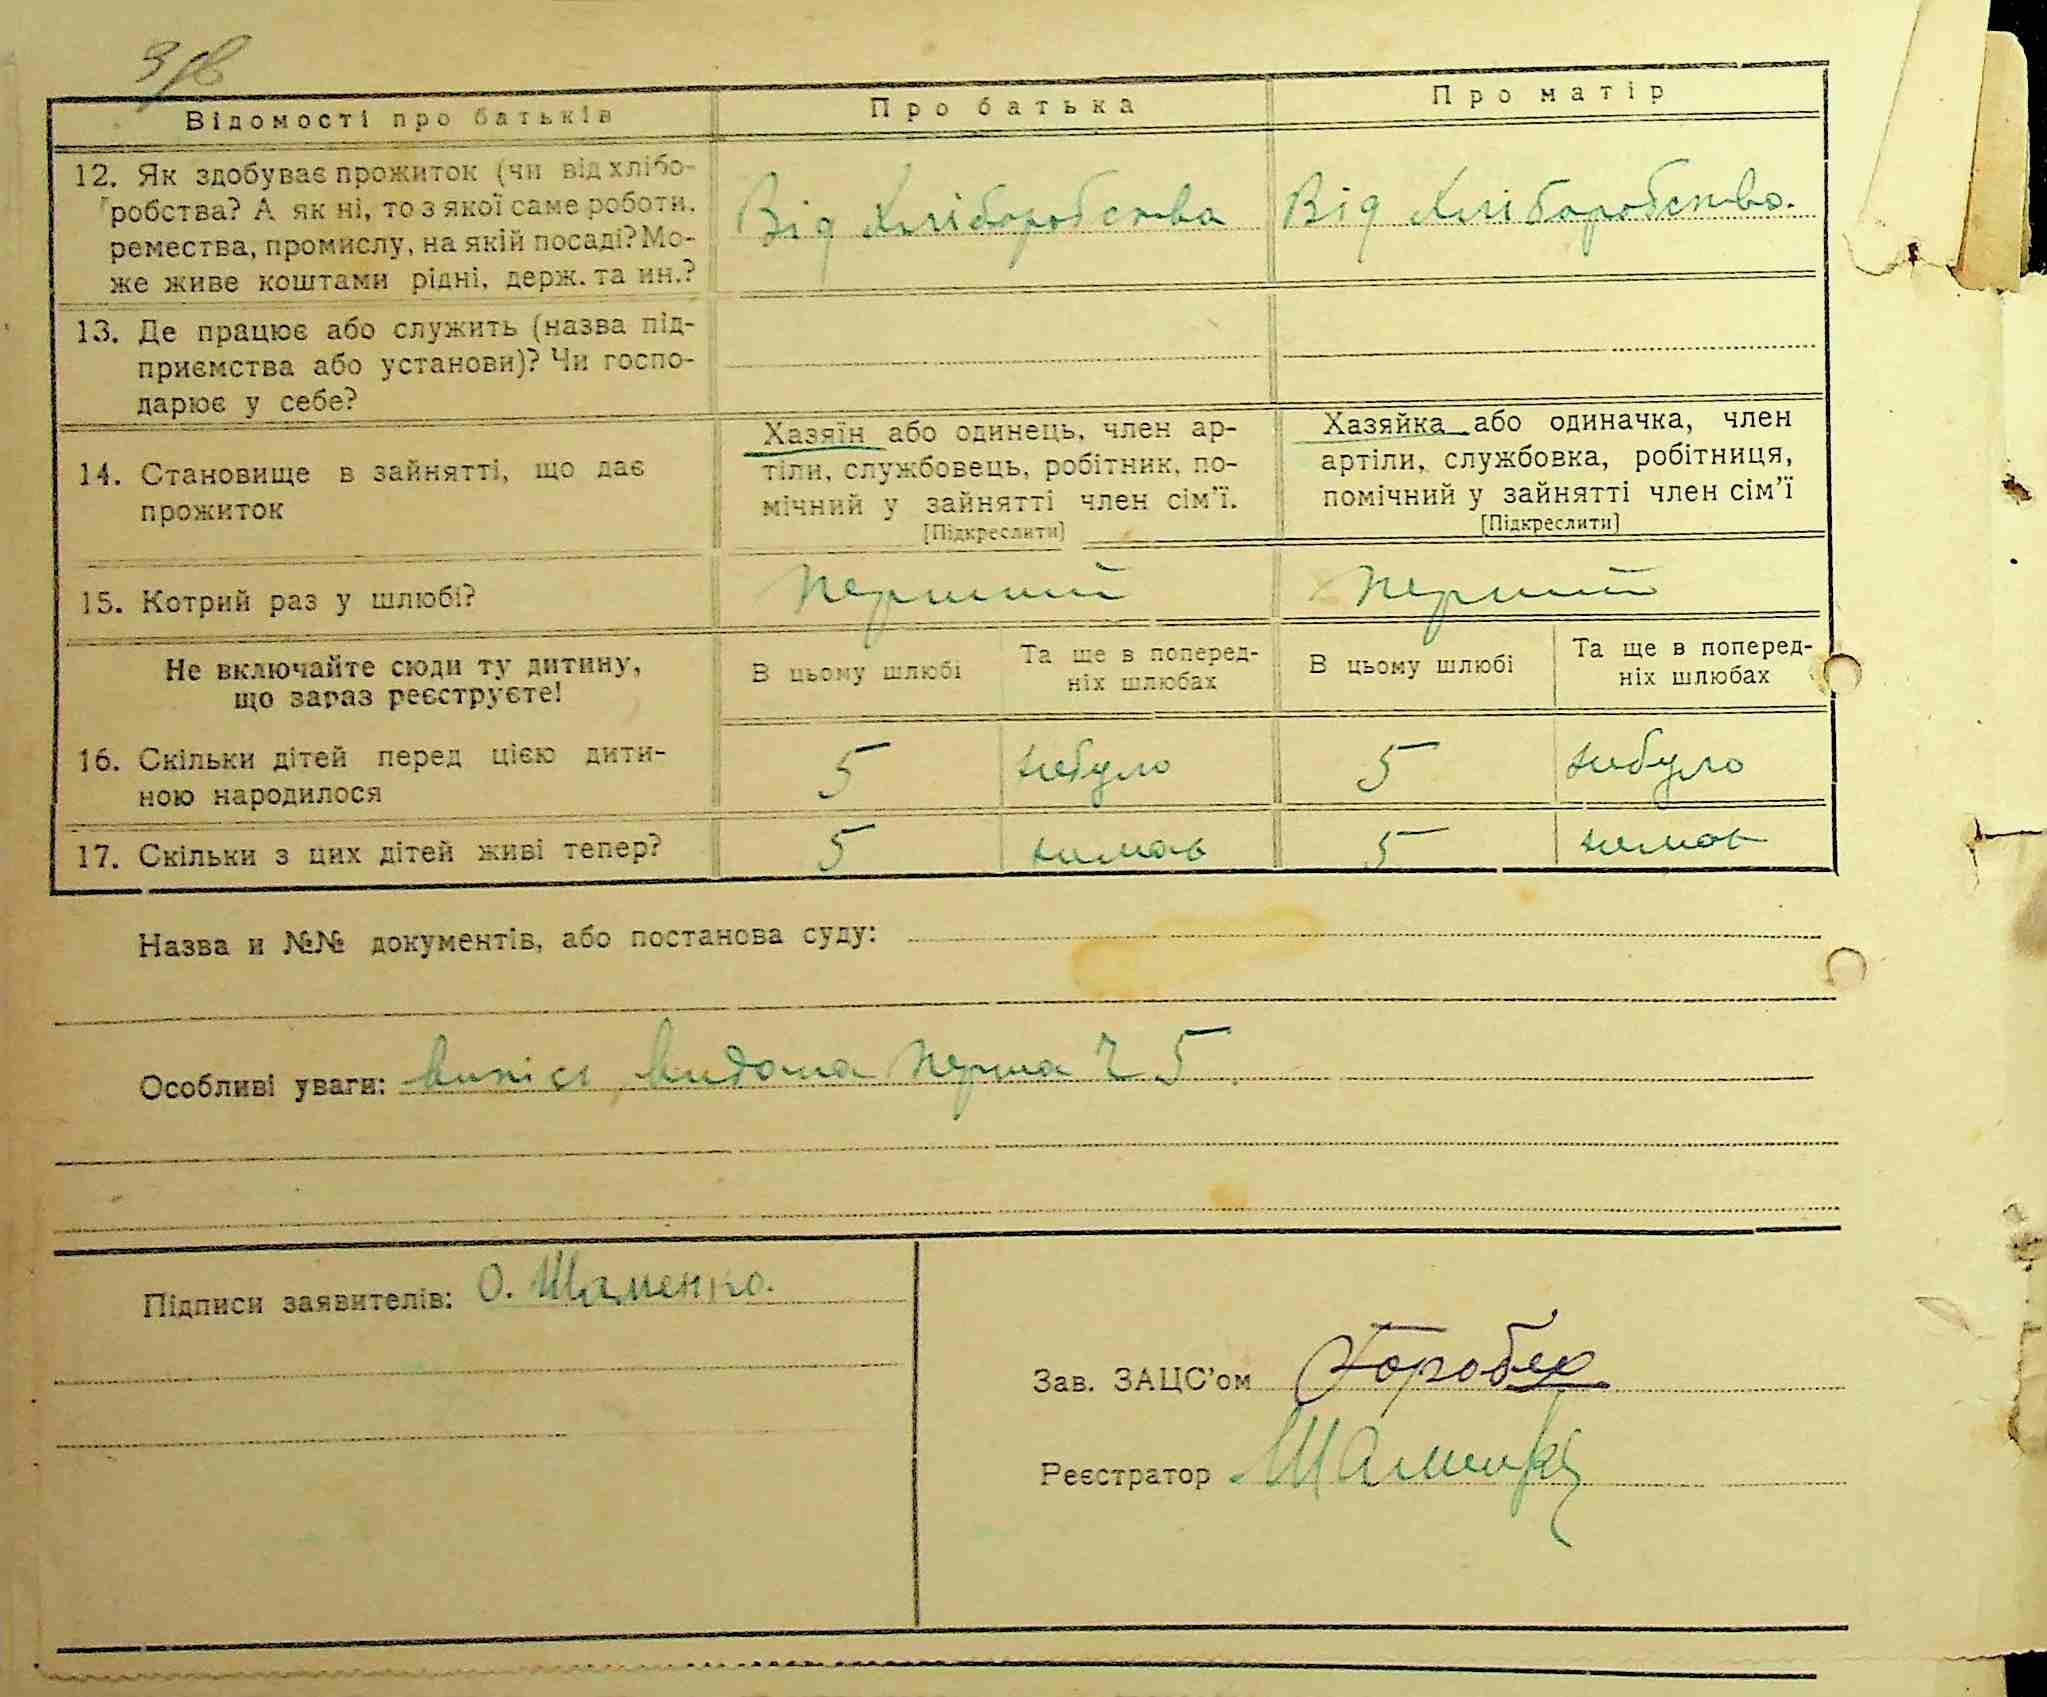 Відомості про батьків
Про батька
Про матір
12. Як здобуває прожиток (чи від хлібо-
робства? А як ні, то з якої саме роботи,
ремества, промислу, на якій посаді? Мо-
же живе коштами рідні, держ. та ин.?
Від Хліборобства
Від Хліборобство.
13. Де працює або служить (назва під-
приємства або установи)? Чи госпо-
дарює у себе?
14. Становище в зайнятті, що дає
прожиток
Хазяїн або одинець, член ар-
тіли, службовець, робітник, по-
мічний у зайнятті член сім'ї.
[Підкреслити]
Хазяйка або одиначка, член
артіли, службовка, робітниця,
помічний у зайнятті член сім'ї
[Підкреслити]
15. Котрий раз у шлюбі?
перший
перший
Не включайте сюди ту дитину,
що зараз реєструєте!
В цьому шлюбі
Та ще в поперед-
ніх шлюбах
В цьому шлюбі
Та ще в поперед-
ніх шлюбах
16. Скільки дітей перед цією дити-
ною народилося
5
небуло
5
небуло
17. Скільки з цих дітей живі тепер?
5
немає
5
немає
Назва и №№ документів, або постанова суду:
Особливі уваги: випісь видома перша Ч 5
Підписи заявителів: О. Шаменко.
Зав. ЗАЦС'ом
Реєстратор Шаменко